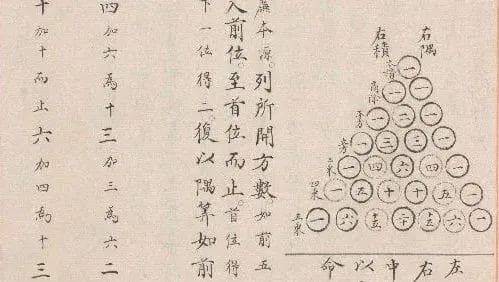 右隅
右積
本積 一
商除 一 一
平方 一 二 一
立方 一 三 三 一
三乘 一 四 六 四 一
四乘 一 五 十 十 五 一
五乘 一 六 十五 二十 十五 六 一
左
右
中
以
命
廉本源。列所開方數。如前五
入前位。至首位而止。首位得
下一位得二。復以隅算如前
四加六為十三加三為六二
十加十而止六加四為十三